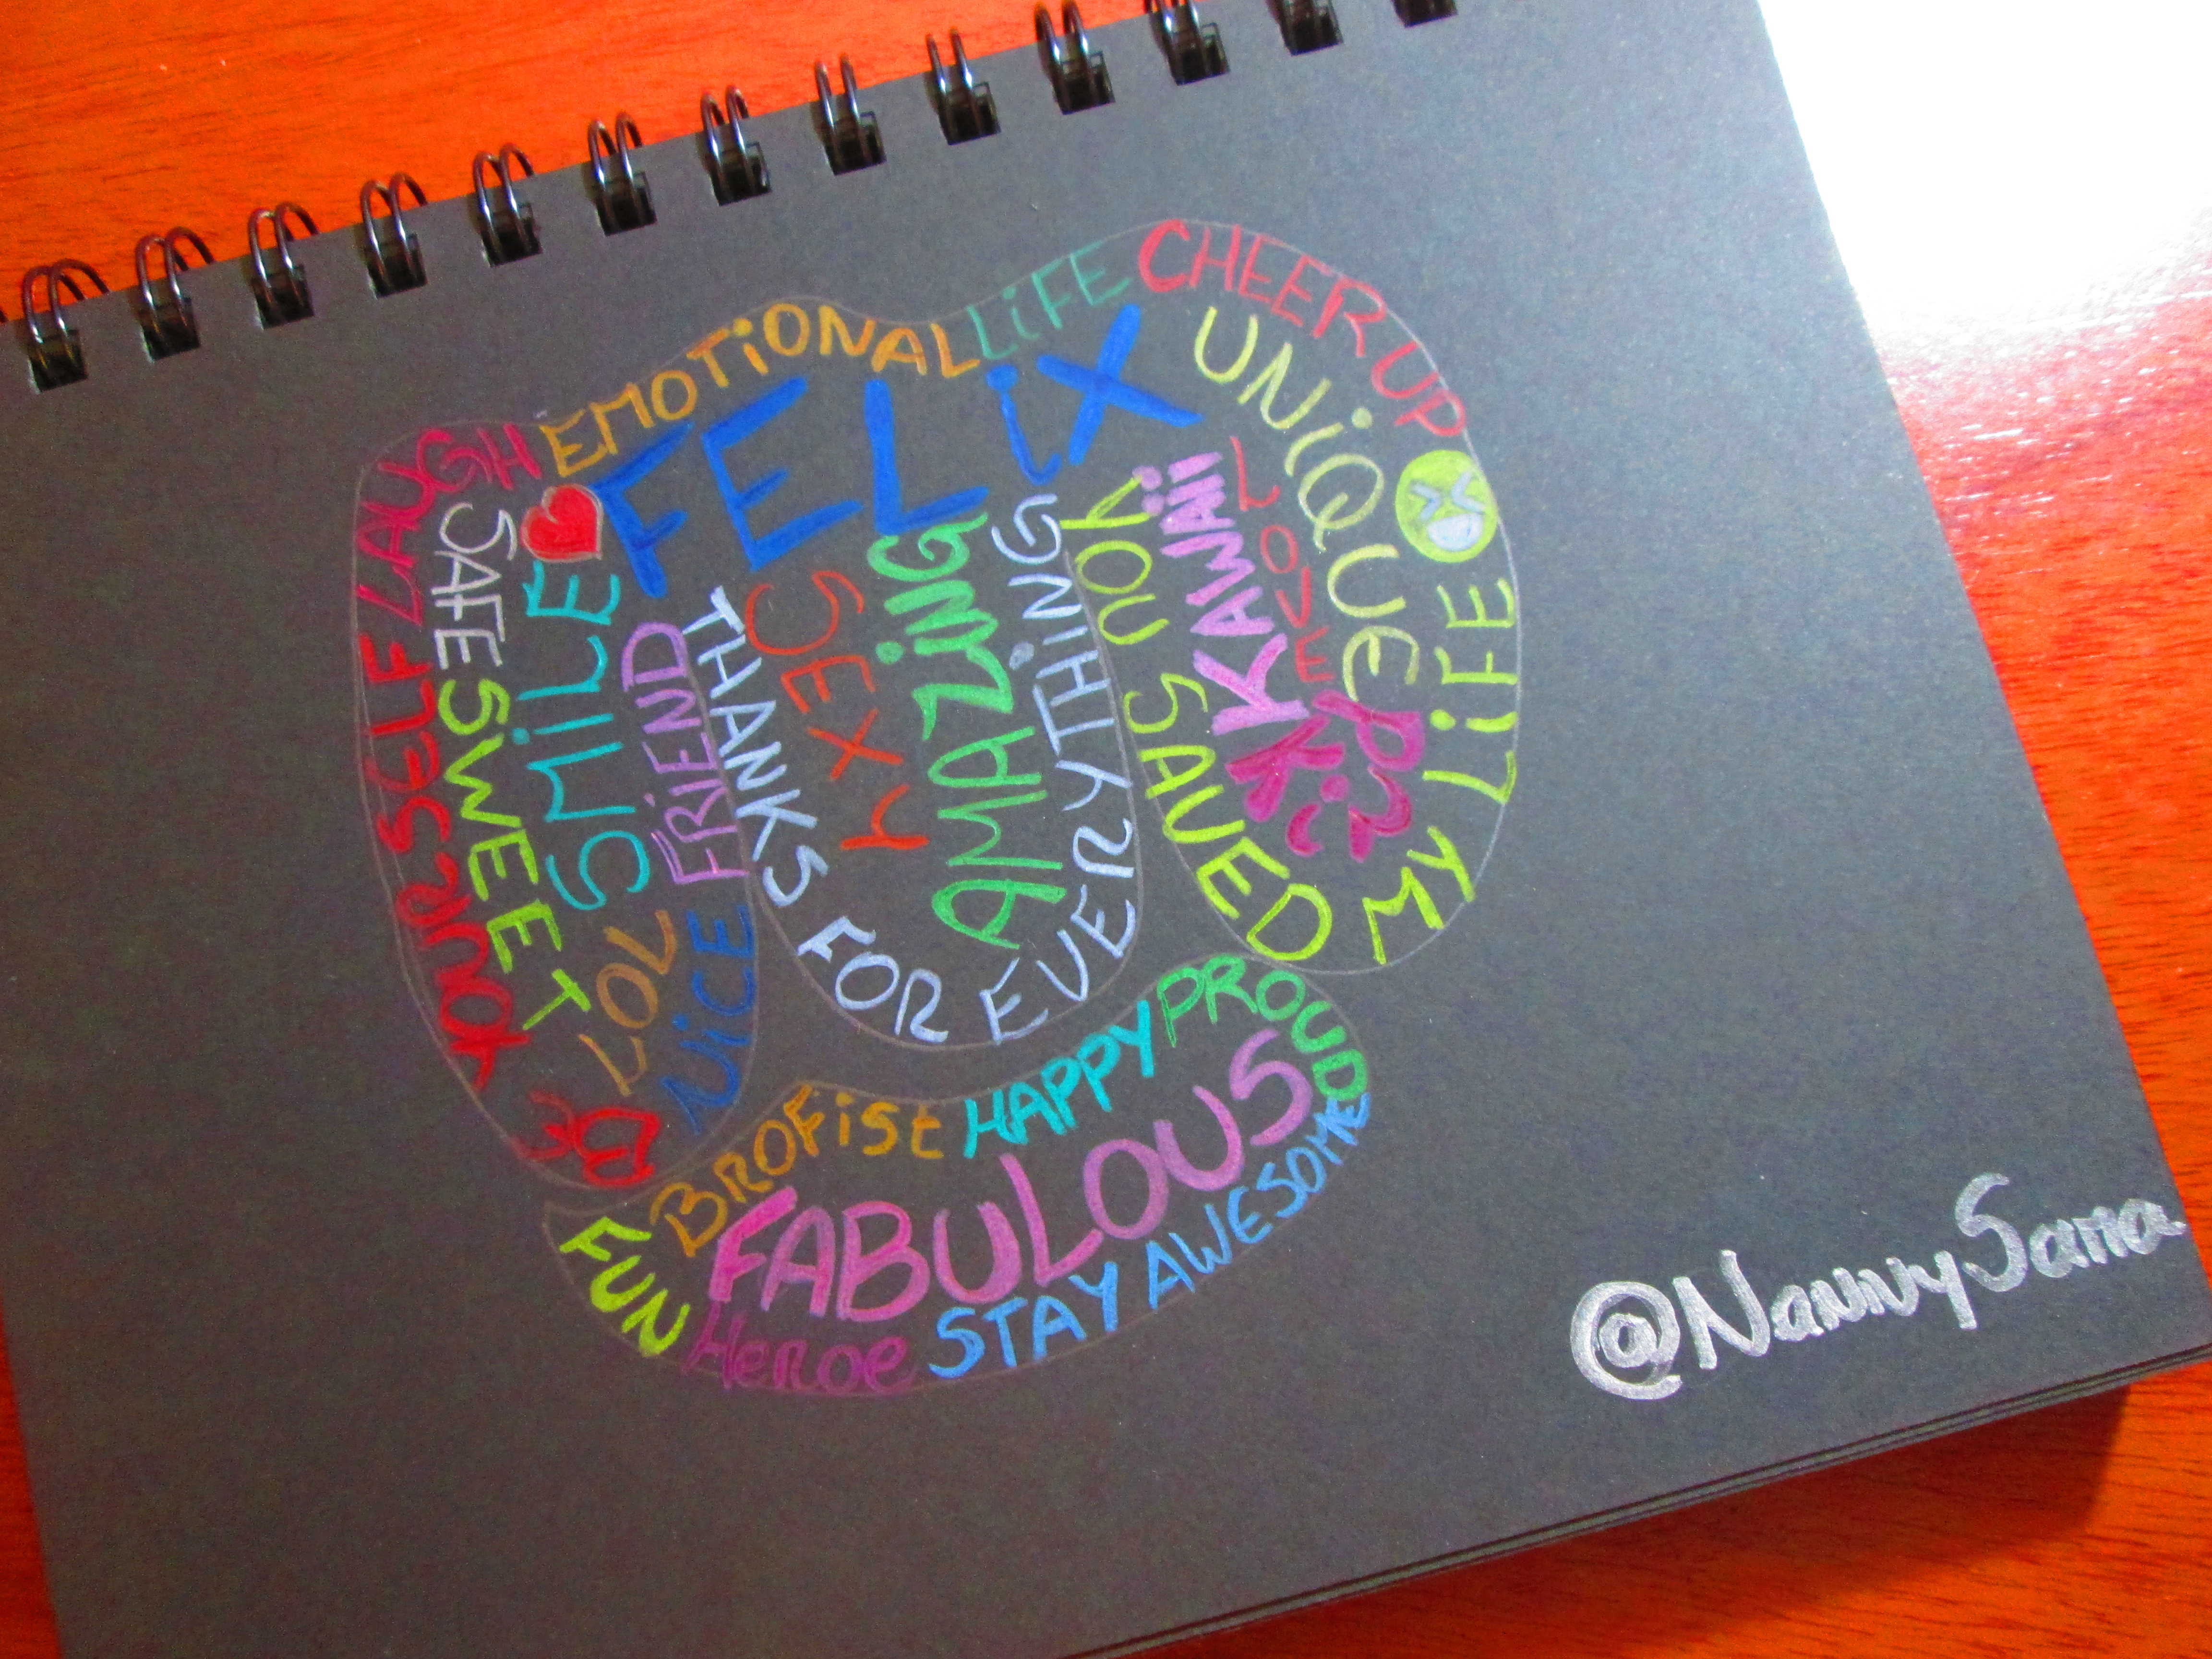 LAUGH
EMOTIONAL
LiFE
CHEER UP
FELiX
UNiQUE
BE YOUR SELF
SAFE
SWEET
SMiLE
LOL
NiCE
FRiEND
THANKS FOR EVERYTHiNG
SEXY
AMAZiNG
YOU SAVED MY LiFE
KAWAii
LOVE
BROFiST
HAPPY
PROUD
FABULOUS
FUN
HeRoe
STAY AWESOME
@NannySama